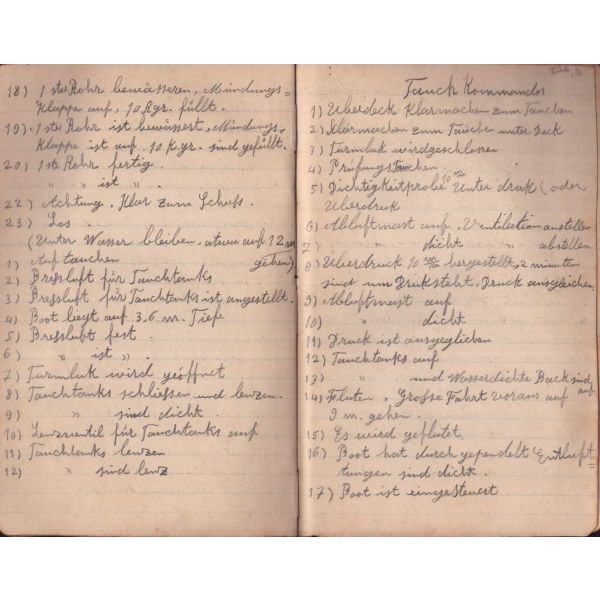 18) 1 stes Rohr bewässeren, Mündungs=
Klappe auf, 10 K.gr. füllt.
19) 1 ste Rohr ist bewässert, Mündungs=
Klappe ist auf, 10 K.gr. sind gefüllt.
20) 1ste Rohr fertig.
" " ist " .
22) Achtung, Klar zum Schuss.
23) Los.
(Unter Wasser bleiben, etwa auf 12 m
gehen)
1) Auftauchen
2) Pressluft für Tauchtanks
3) Pressluft für Tauchtanks ist angestellt.
4) Boot liegt auf 3,6 m. Tiefe
5) Pressluft fest.
6) " ist " .
7) Turmluk wird geöffnet
8) Tauchtanks schliessen und lenzen.
9) " sind dicht.
10) Lenzventil für Tauchtanks auf
11) Tauchtanks lenzen
12) " sind lenz
Tauch Kommandos
1) Uberdeck Klarmachen zum Tauchen
2) Klarmachen zum Tauchen unter Deck
3) Turmluk wird geschlossen
4) Prüfungstauchen
5) Dichtigkeitprobe 10 Unter druk (oder
Uberdruk
6) Abluftmast auf, Ventilation anstellen
7) " dicht " abstellen
8) Uberdruck 10 hergestellt, 2 minuten
sind um Druk steht, Druck ausgleichen.
9) Abluftmast auf
10) " dicht.
11) Druck ist ausgeglichen
12) Tauchtanks auf
13) " und Wasserdichte Back sind
auf
14) Fluten, Grosse Fahrt voraus auf
9 m. gehen.
15) Es wird geflutet
16) Boot hat durch gependelt Entluft=
tungen sind dicht.
17) Boot ist eingesteuert